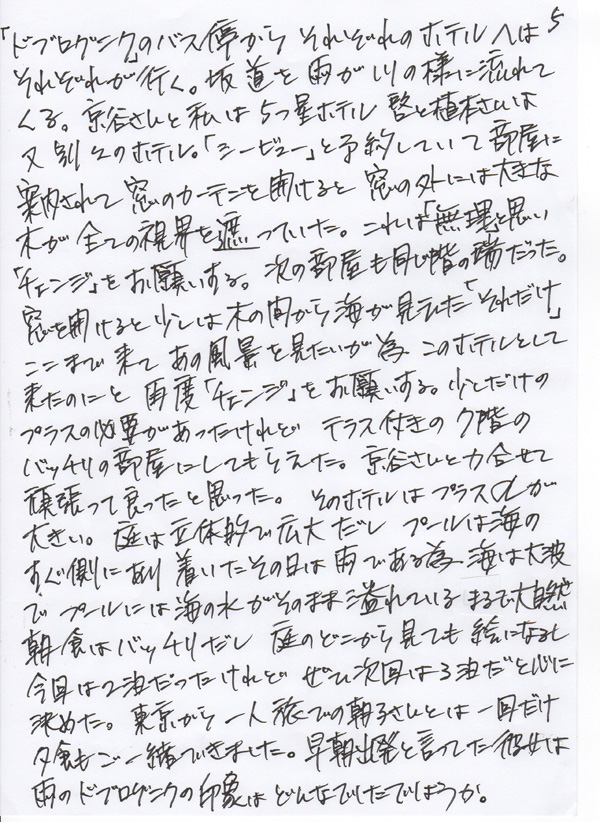 5
「ドブログニク」のバス停から それぞれのホテルへは
それぞれが行く。坂道を雨が川の様に流れて
くる。京谷さんと私は5つ星ホテル 啓と植本さんは
又別々のホテル。「シービュー」と予約していて部屋に
案内されて窓のカーテンを開けると 窓の外には大きな
木が全ての視界を遮っていた。これは「無理」と思い
「チェンジ」をお願いする。次の部屋も同じ階の端だった。
窓を開けると少しは木の間から海が見えた「それだけ」
ここまで来て あの風景を見たいが為 このホテルとして
来たのにと 再度「チェンジ」をお願いする。少しだけの
プラスの必要があったけれど テラス付きの7階の
バッチリの部屋にしてもらえた。京谷さんと力合せて
頑張って良ったと思った。そのホテルはプラスαが
大きい。庭は立体的で広大だし プールは海の
すぐ側にあり 着いたその日は雨である為 海は大波
で プールには海の水がそのまま溢れている まるで大自然
朝食はバッチリだし 庭のどこから見ても 絵になるし
今回は2泊だったけれど ぜひ次回は3泊だと心に
決めた。東京から一人旅での朝子さんとは一回だけ
夕食もご一緒できました。早朝出発と言ってた彼女は
雨のドブログニクの印象はどんなでしたでしょうか。